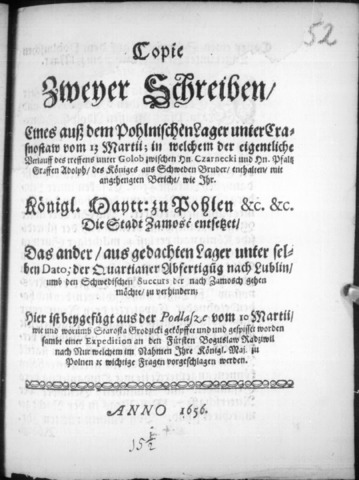 52
Copie
Zweyer Schreiben/
Eines auß dem Pohlnischen Lager unter Cras-
nostaw vom 13 Martii; in welchem der eigentliche
Verlauff des treffens unter Golob zwischen Hn. Czarnecki und Hn. Pfaltz
Graffen Adolph/ des Königes aus Schweden Bruder/ enthalten/ mit
angehengten Bericht/ wie Ihr.
Königl. Maytt: zu Pohlen &c. &c.
Die Stadt Zamość entsetzet/
Das ander/ aus gedachten Lager unter sel-
ben Dato; der Quartianer Abfertigūg nach Lublin/
umb den Schwedischen Succurs der nach Zamosch gehen
möchte/ zu verhindern;
Hier ist beygefügt aus der Podlasze vom 10 Martii/
wie und worumb Starosta Grodzicki geköpffet und und gespisset worden
sambt einer Expedition an den Fürsten Boguslaw Radziwil
nach Nur welchem im Nahmen Ihre Königl. Maj. zu
Polnen &c wichtige Fragen vorgeschlagen werden.
ANNO 1656.